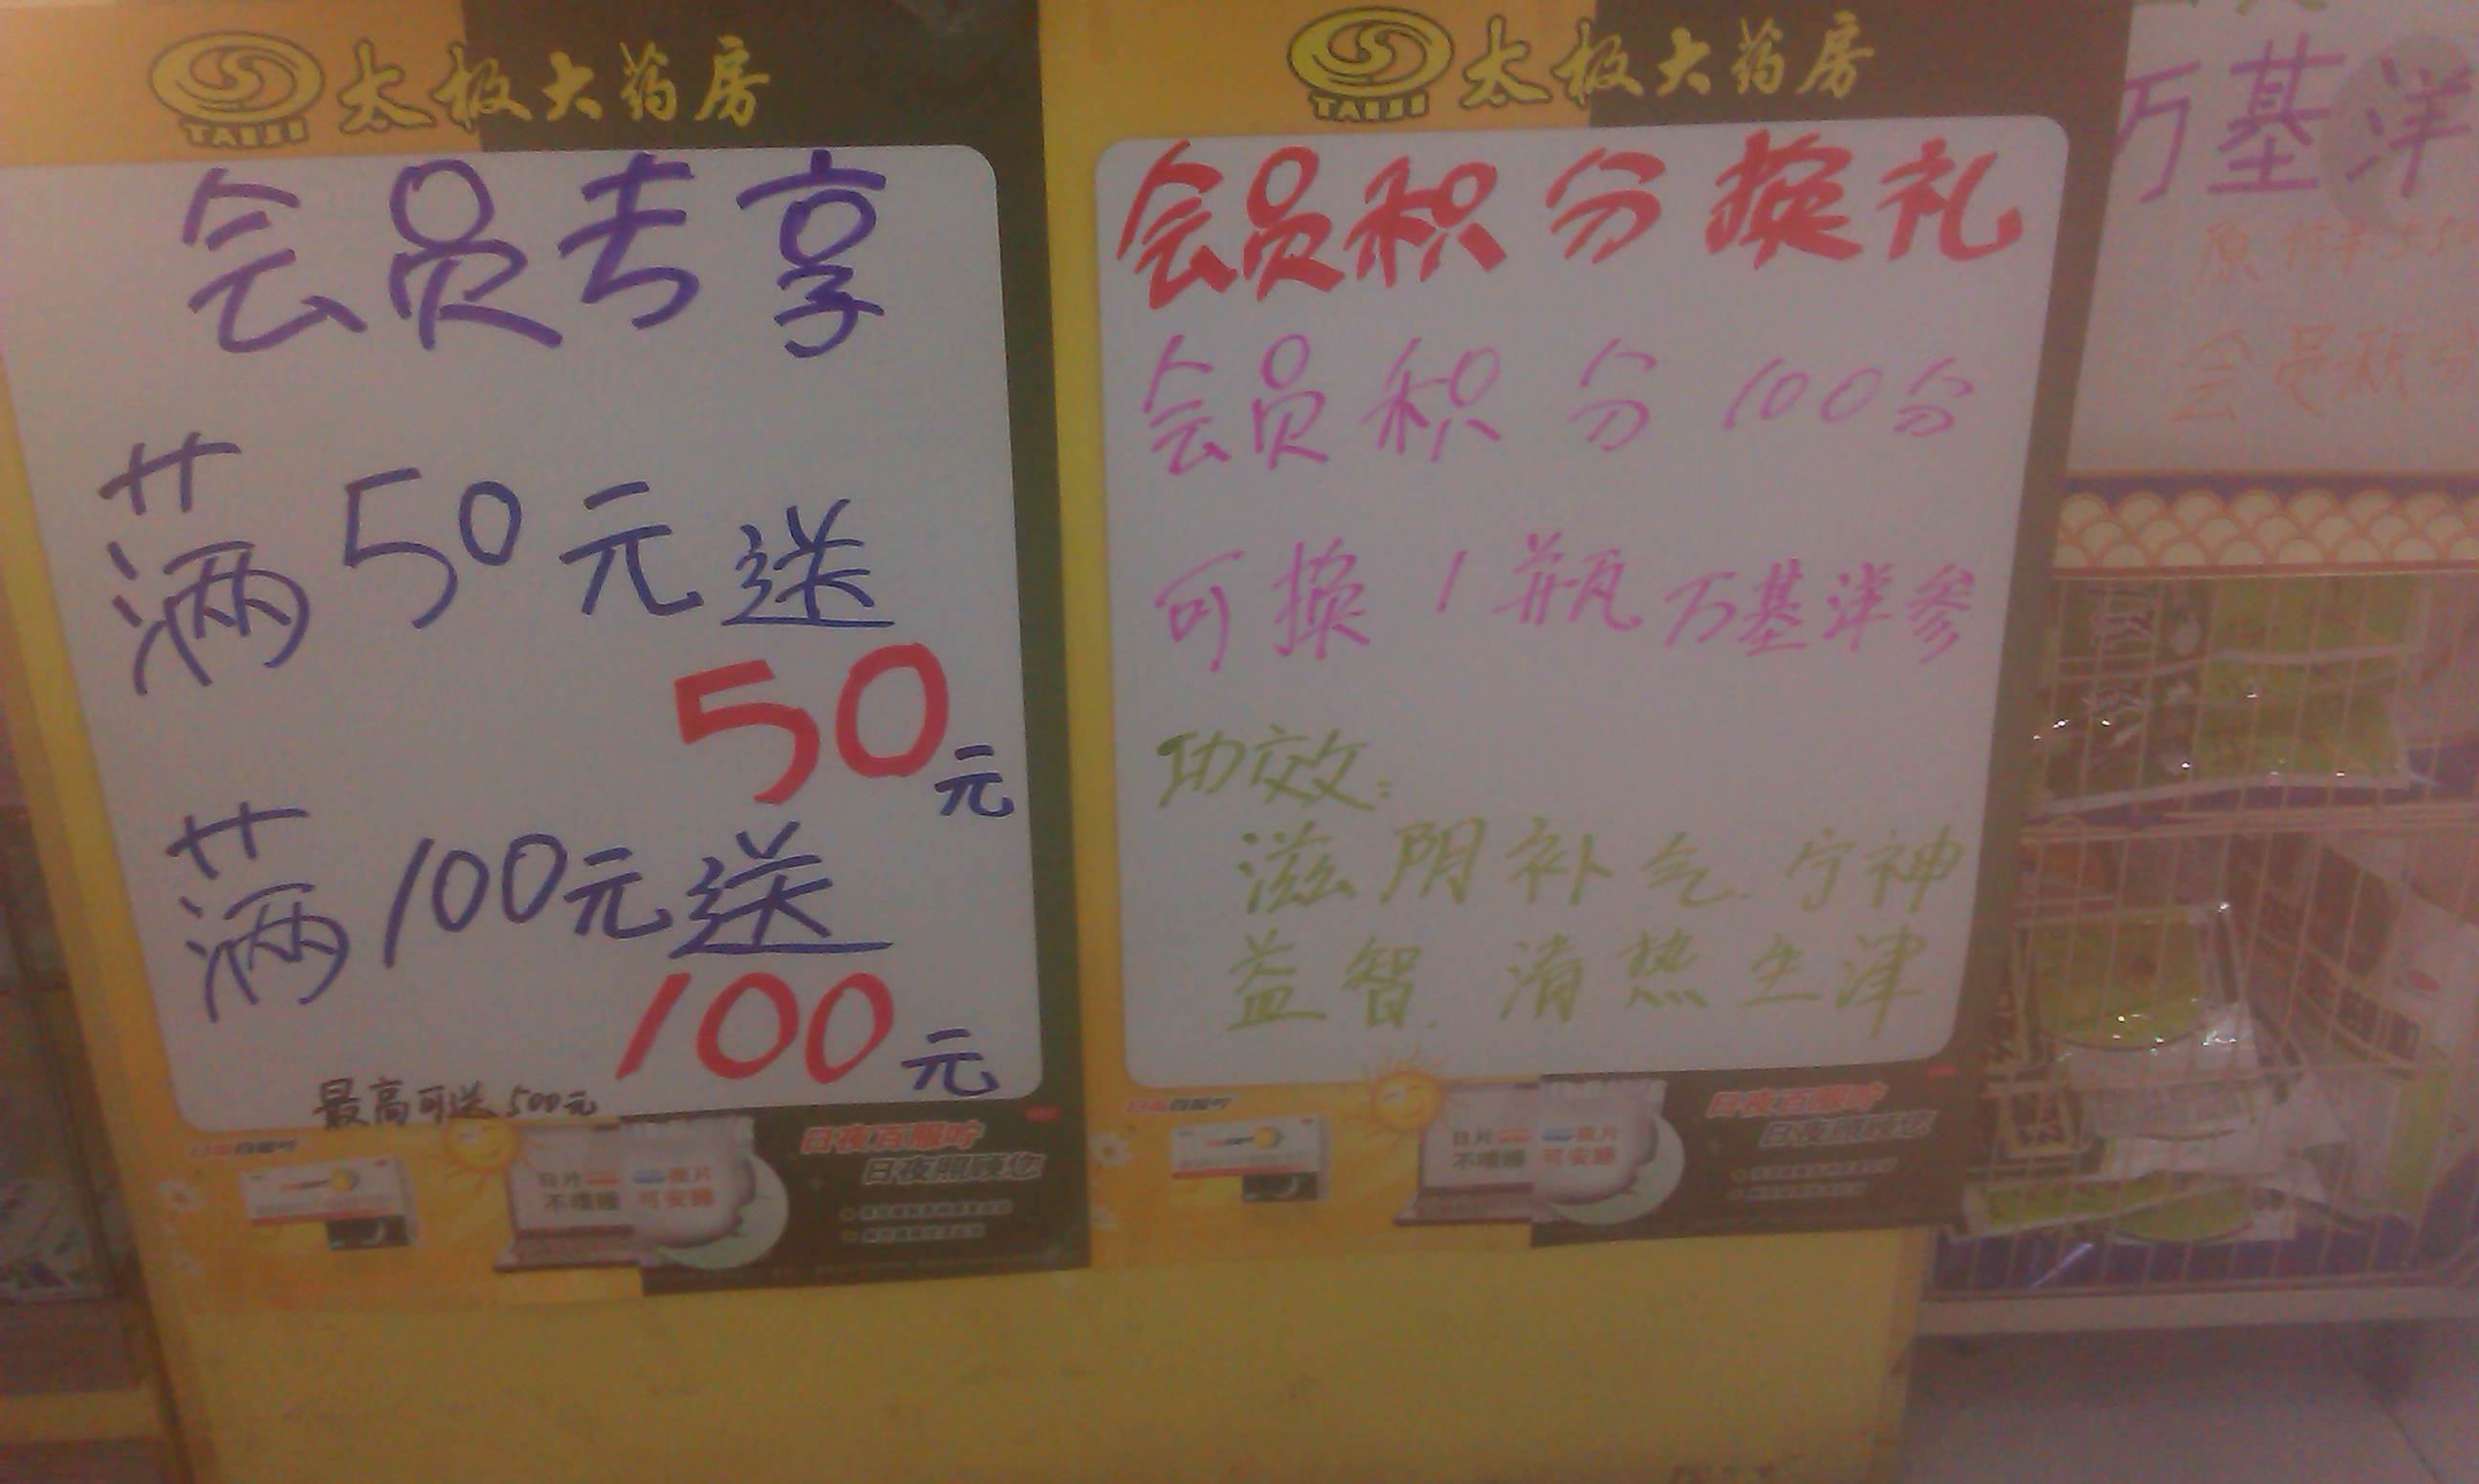 TAIJI 太极大药房
会员专享
满50元送
50元
满100元送
100元
最高可送500元
日夜百服咛
日片 夜片
不嗜睡 可安睡
日夜百服咛
日夜照顾您
TAIJI 太极大药房
会员积分换礼
会员积分100分
可换1瓶万基洋参
功效:
滋阴补气.宁神
益智.清热生津
日夜百服咛
日片 夜片
不嗜睡 可安睡
日夜百服咛
日夜照顾您
万基洋
会员积分